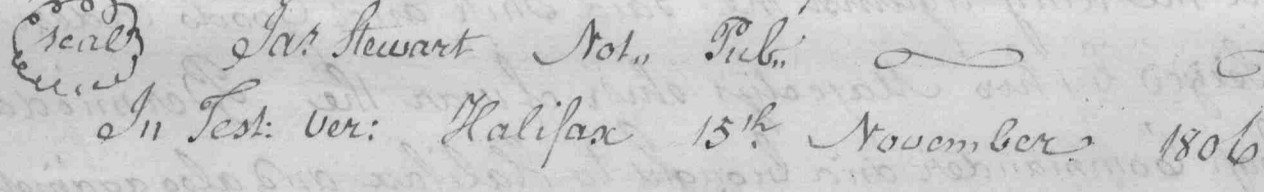 seal Jas Stewart Not,, Pub,,
In Test: Ver: Halifax 15th November 1806